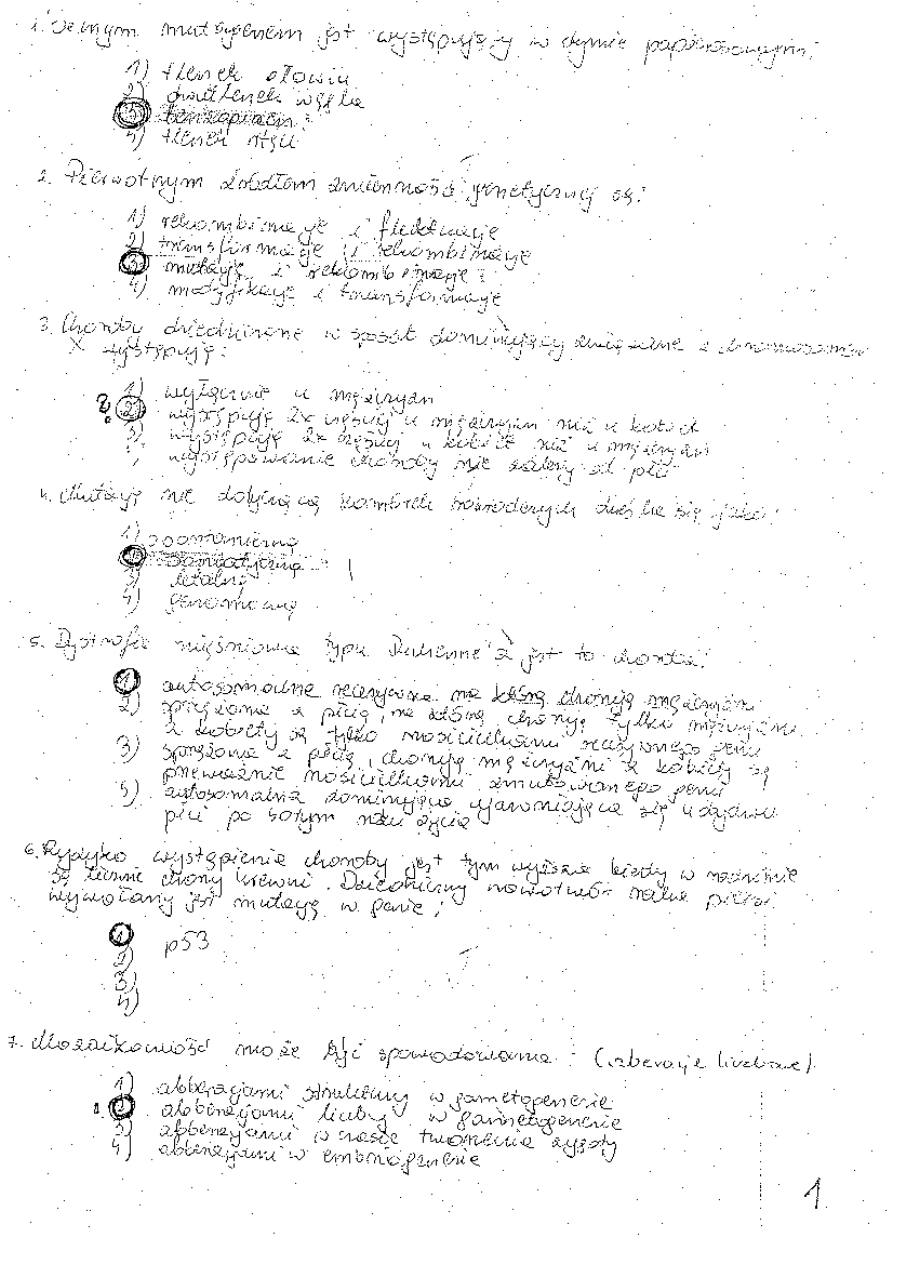 1. Silnym mutagenem jest występujący w dymie papierosowym:
1) tlenek ołowiu
2) dwutlenek węgla
3) benzopiren?
4) tlenek rtęci
2. Pierwotnym źródłem zmienności genetycznej są:
1) rekombinacje i fluktuacje
2) transformacje i rekombinacje
3) mutacje i rekombinacje?
4) modyfikacje i transformacje
3. Choroby dziedziczone w sposób dominujący związane z chromosomem
X występują:
1) wyłącznie u mężczyzn
? 2) występuję 2x częściej u mężczyzn niż u kobiet
3) występuję 2x częściej u kobiet niż u mężczyzn
występowanie choroby nie zależy od płci
4. Mutacje nie dotyczącą komórek rozrodczych określa się jako:
1)
2) somatyczną
3) letalną
4) genomową
5. Dystrofia mięśniowa typu Duchenne'a jest to choroba:
1) autosomalna recesywna na którą chorują mężczyźni
2) sprzężona z płcią, na którą chorują tylko mężczyźni
a kobiety są tylko nosicielkami recesywnego genu
3) sprzężona z płcią, chorują mężczyźni a kobiety są
przeważnie nosicielkami zmutowanego genu
5) autosomalna dominująca ujawniająca się u obydwu
płci po 50tym roku życia
6. Ryzyko wystąpienia choroby jest tym wyższe kiedy w rodzinie
są liczne chorzy krewni. Dziedziczny nowotwór raka piersi
wywołany jest mutacją w genie:
1) p53
2)
3)
4)
7. Mozaikowość może być spowodowana: (aberacje liczbowe)
1) abberacjami struktury w gametogenezie
2) abberacjami liczby w gametogenezie
3) abberacjami w czasie tworzenia zygoty
4) abberacjami w embriogenezie
1